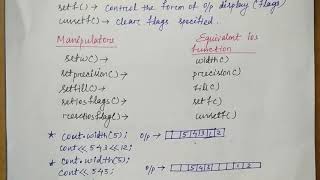 setf() → Control the form of o/p display (flags)
unsetf() → clear flags specified.
Manipulators Equivalent ios function
setw() → width()
setprecision() → precision()
setfill() → fill()
setiosflags() → setf()
resetiosflags() → unsetf()
* cout.width(5);
cout << 543 << 12; o/p → 5 4 3 1 2
* cout.width(5);
cout << 543; o/p → 5 4 3 1 2